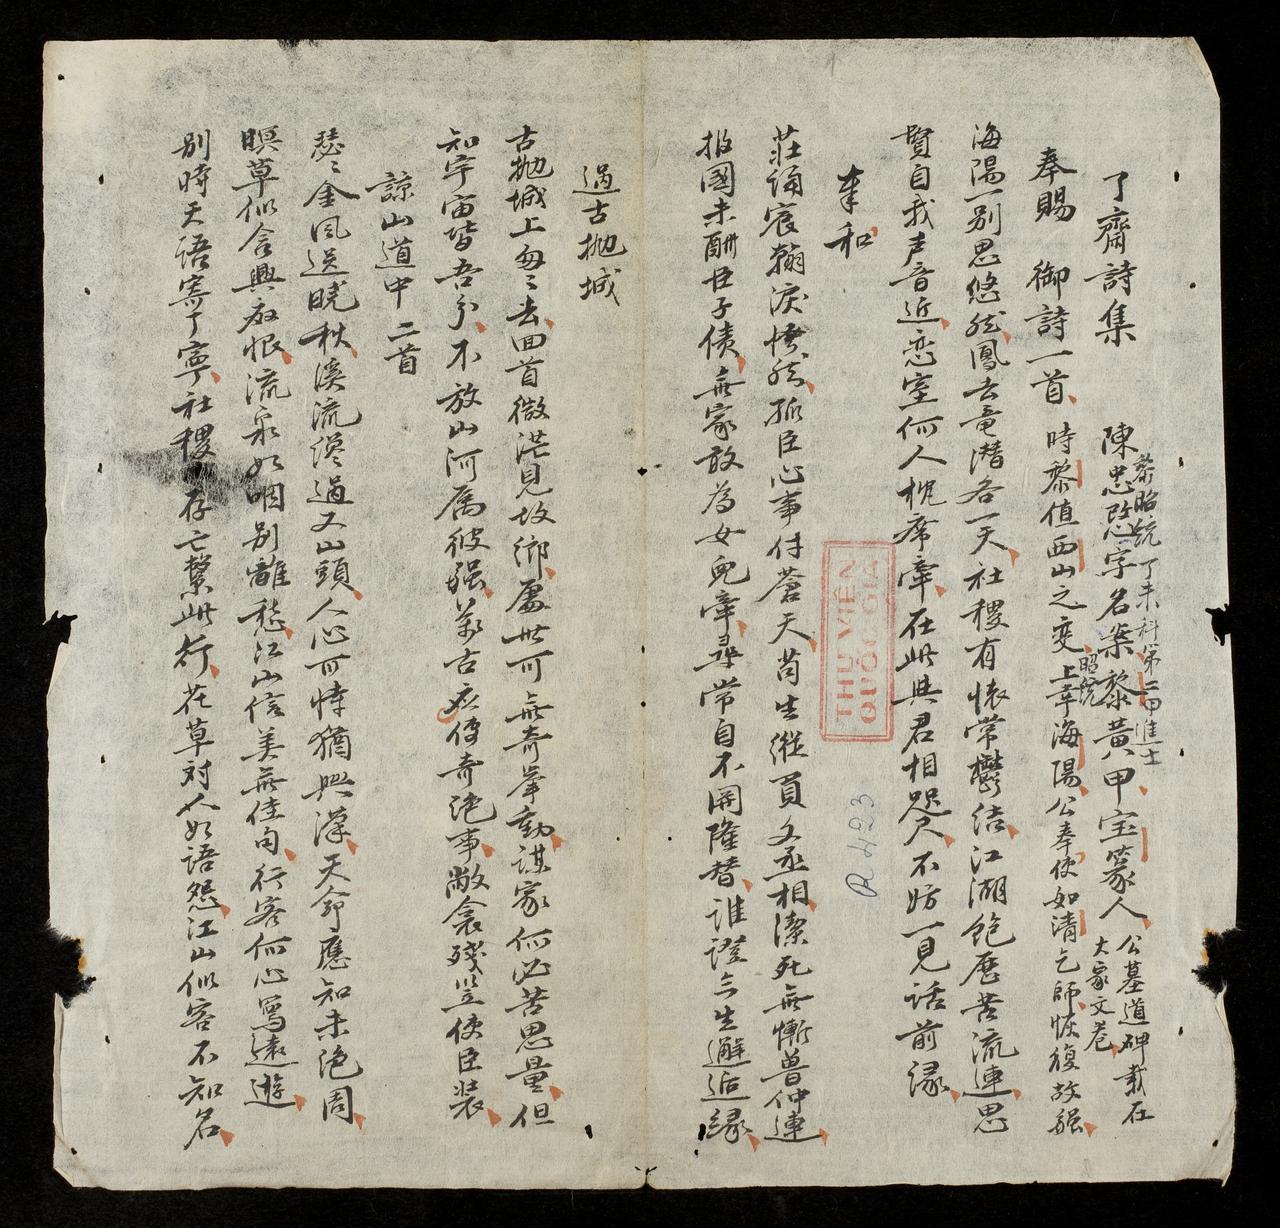 了齋詩集
陳忠愍字名案黎黃甲宝篆人
黎昭統丁未科第二甲進士
公墓道碑載在
大家文卷
奉賜 御詩一首
時黎值西山之变上幸海陽公奉使如清乞師恢復故疆
昭統
海陽一別思悠然鳳去竜潜各一天社稷有懐常欝結江湖飽歷苦流連思
賢自我声音近恋室何人枕席牽在此與君相咫尺不妨一見话前縁
奉和
莊誦宸翰淚愴然孤臣心事付蒼天苟生縱負文丞相潔死無慚魯仲連
报國未酬臣子債無家敢為女兒牽尋常自不閑隆替誰證三生邂逅縁
THƯ VIÊN
QUỐC GIA
R.423
過古抛城
古抛城上匆〻去回首微茫見故鄉處世可無奇挙動謀家何必苦思量但
知宇宙皆吾分不放山河属彼强萬古应傳奇绝事敝衾殘笠使臣裝
諒山道中二首
瑟〻金風送曉秋溪流纔過又山頭人心可恃猶興漢天命應知未绝周
暝草似含興廢恨流泉如咽別離愁江山信美無佳句行客何心寫遠遊
別時天语寄丁寧社稷存亡繫此行花草対人如语怨江山似客不知名